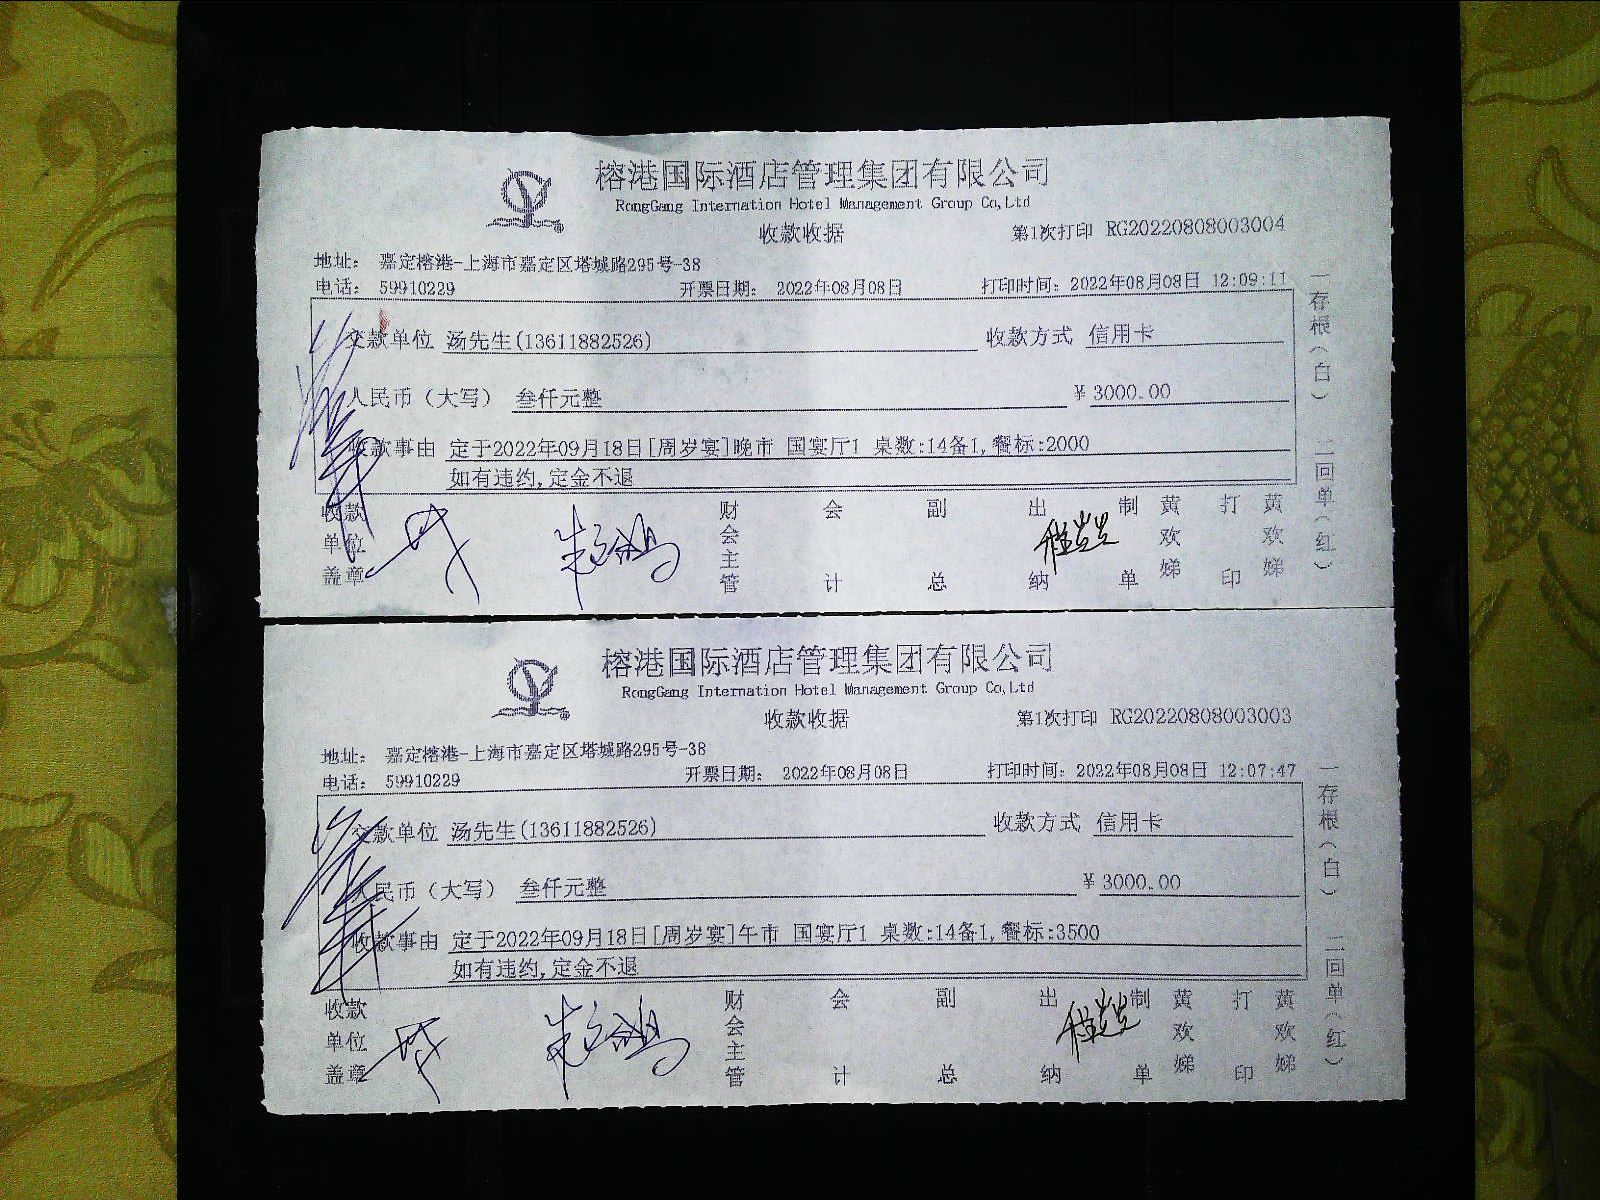 榕港国际酒店管理集团有限公司
RongGang Internation Hotel Management Group Co,Ltd
收款收据
第1次打印 RG20220808003004
地址： 嘉定榕港-上海市嘉定区塔城路295号-38
电话： 59910229 开票日期： 2022年08月08日 打印时间：2022年08月08日 12:09:11
交款单位 汤先生(13611882526) 收款方式 信用卡
人民币（大写） 叁仟元整 ¥ 3000.00
收款事由 定于2022年09月18日[周岁宴]晚市 国宴厅1 桌数:14备1,餐标:2000
如有违约,定金不退
收款单位盖章 财会主管 会计 副总 出纳 制单 黄欢娣 打印 黄欢娣
一存根（白） 二回单（红）
榕港国际酒店管理集团有限公司
RongGang Internation Hotel Management Group Co,Ltd
收款收据
第1次打印 RG20220808003003
地址： 嘉定榕港-上海市嘉定区塔城路295号-38
电话： 59910229 开票日期： 2022年08月08日 打印时间：2022年08月08日 12:07:47
交款单位 汤先生(13611882526) 收款方式 信用卡
人民币（大写） 叁仟元整 ¥ 3000.00
收款事由 定于2022年09月18日[周岁宴]午市 国宴厅1 桌数:14备1,餐标:3500
如有违约,定金不退
收款单位盖章 财会主管 会计 副总 出纳 制单 黄欢娣 打印 黄欢娣
一存根（白） 二回单（红）